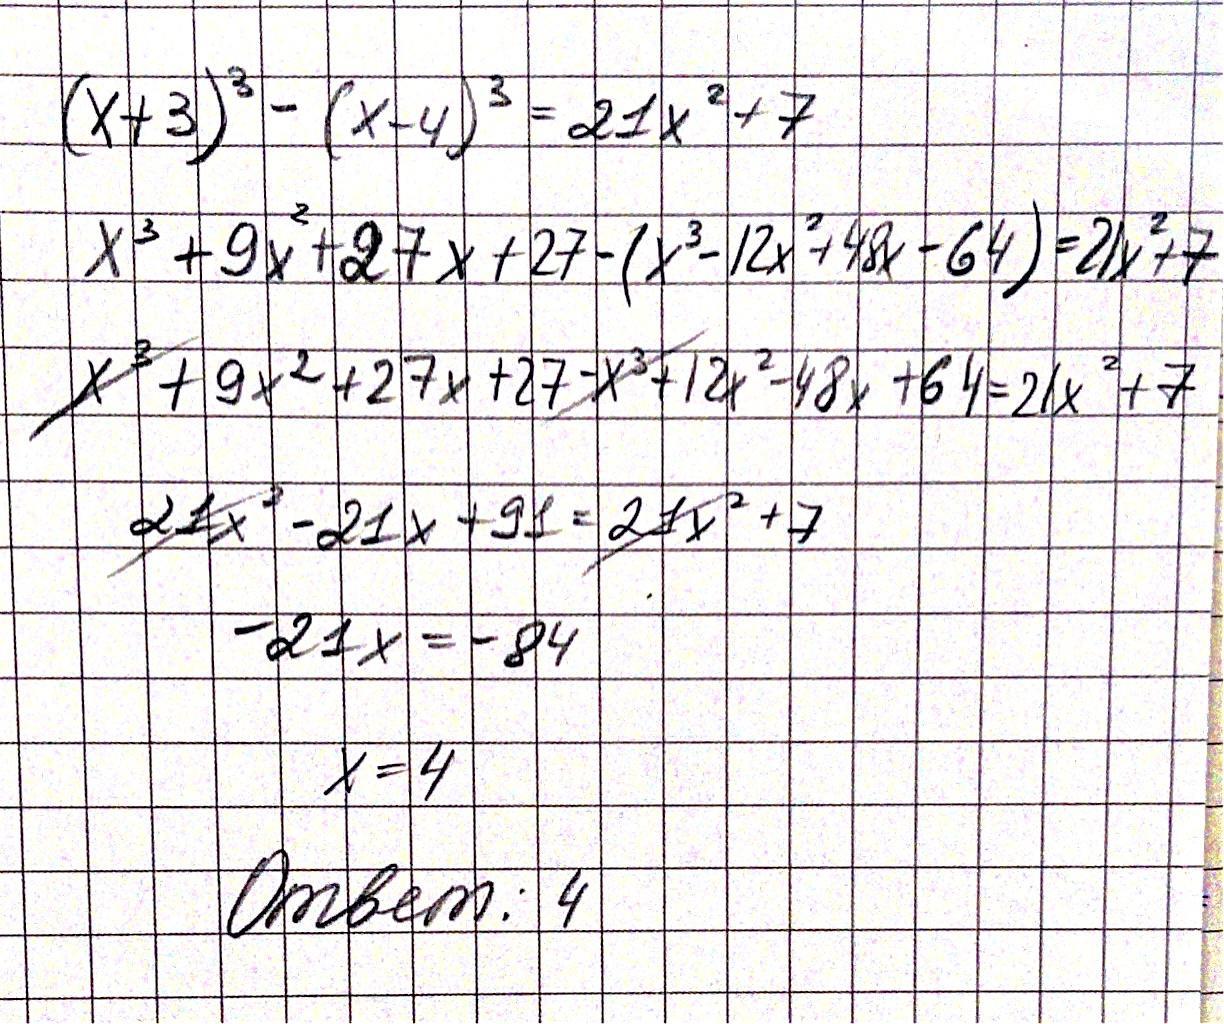 (x+3)³ - (x-4)³ = 21x² + 7
x³ + 9x² + 27x + 27 - (x³ - 12x² + 48x - 64) = 21x² + 7
x³ + 9x² + 27x + 27 - x³ + 12x² - 48x + 64 = 21x² + 7
21x² - 21x + 91 = 21x² + 7
-21x = -84
x = 4
Ответ: 4